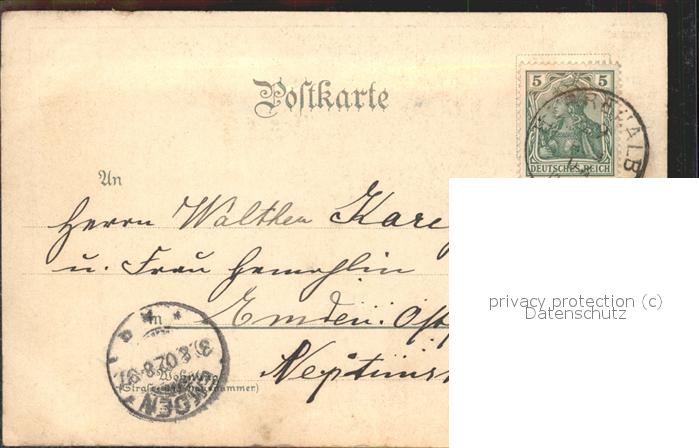 Postkarte
5 5
DEUTSCHES REICH
An
Herrn Walther
u. Frau Gemahlin
in Emden. Ostf
Neptuns
Wohnung
(Straße und Hausnummer)
EMDEN
31.8.02.8-9
privacy protection (c)
Datenschutz